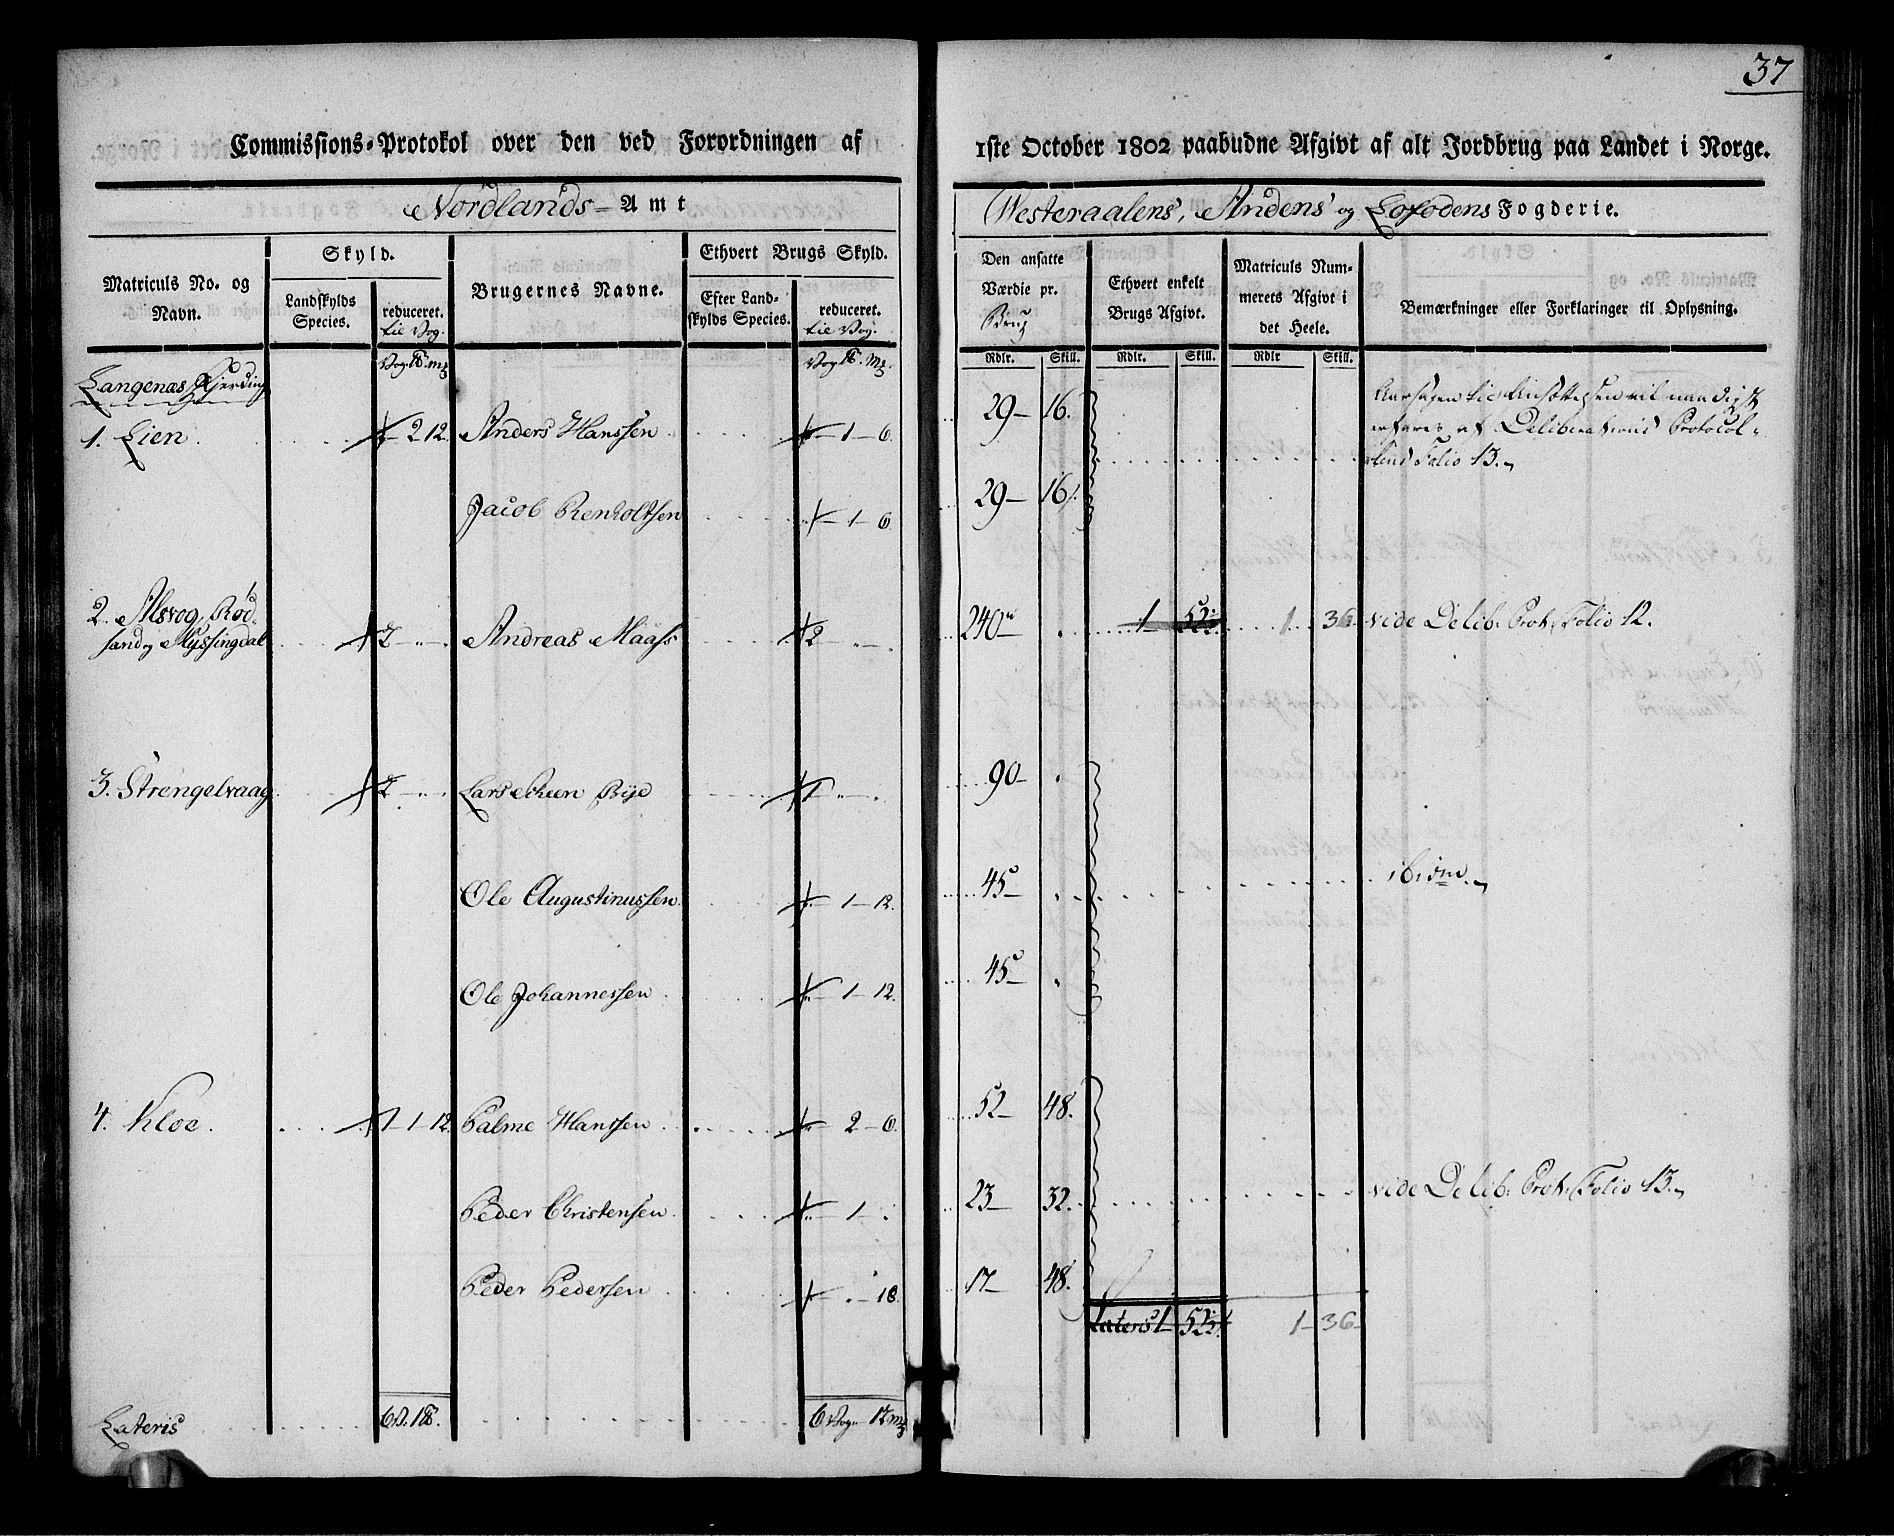 37
Commissions-Protokol over den ved Forordningen af
1ste October 1802 paabudne Afgivt af alt Jordbrug paa Landet i Norge.
Nordlands- Amt
Westeraalens, Andens og Lofodens Fogderie.
Matriculs No. og Navn.
Skyld.
Landskylds Species.
reduceret. til Vog.
Brugernes Navne.
Ethvert Brugs Skyld.
Efter Landskylds Species.
reduceret. til Vog.
Den ansatte Værdie pr. Brug
Ethvert enkelt Brugs Afgivt.
Matriculs Nummerets Afgivt i det Heele.
Bemærkninger eller Forklaringer til Oplysning.
Rdlr. Skill. Rdlr. Skill. Rdlr Skill.
Langenæs Fjerding
1. Lien 2 12. Anders Hanssen 1 - 6. 29 - 16.
erfares af Deliberations Protocol-
lens Folio 13.
Jacob Renholtsen 1 - 6 29 - 16.
2. Alsvog, Röd-
sand og Myssingdal 2 Andreas Maass 2 240 1 52 1 36 vide Delib. Prot. Folio 12.
3. Strengelvaag 2 Lars Scheen Bye 1 90 -
Ole Augustinussen 1 - 12. 45 - ibidm
Ole Johannessen 1 - 12. 45 -
4. Kloe. 1 - 1 - 12. Palme Hanssen 2 - 6. 52 - 48.
Peder Christensen 1 23 32. vide Delib. Prot. Folio 13.
Peder Pedersen 18. 17 48.
Lateris 1 52 1 - 36
Lateris 6 V. 1 6 Vog